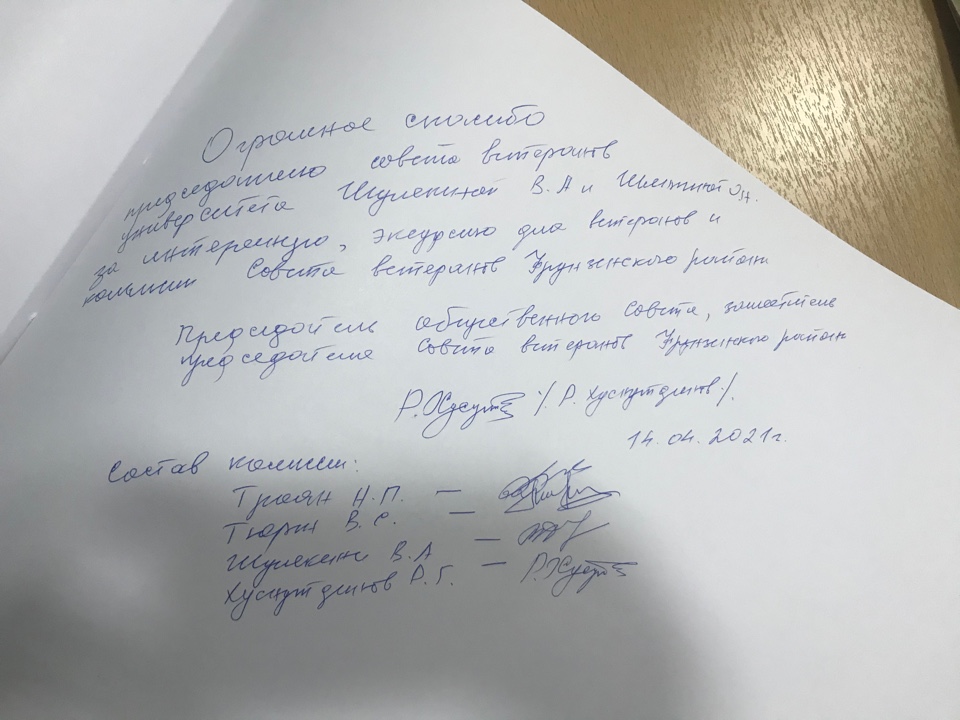 Огромное спасибо
председателю совета ветеранов
университета Шулекиной В.А и
за интересную, экскурсию для ветеранов и
комиссии Совета ветеранов Фрунзенского района
Председатель общественного Совета, заместитель
председателя Совета ветеранов Фрунзенского района
Р. Хуснутдинов
14.04.2021г.
Состав комиссии:
Троян Н.П. —
Тюрин В.С. —
Шулекина В.А —
Хуснутдинов Р.Г. —